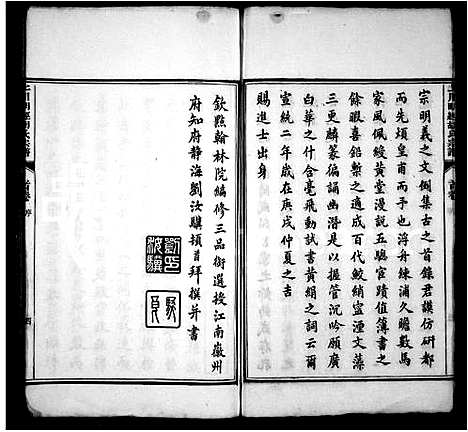 宗明義之文倒集古之首錄君謨仿研都
而先填皇甫而南也海舟練浦久瞻數馬
家風佩綬黃堂漫說五驄宦蹟值簿書之
餘暇喜鉛槧之適成百代鮫綃寍湮文藻
三更麟篆徧謁幽潛是以握管沉吟願廣
白華之什含毫飛動試書黃絹之詞云爾
宣統二年歲在庚戌仲夏之吉
賜進士出身
欽點翰林院編修三品銜選授江南徽州
府知府靜海劉汝驥頓首拜撰并書
首卷
序
四